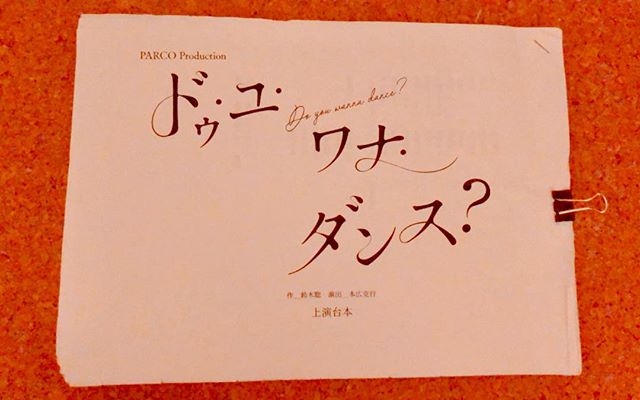 PARCO Production
ドゥ・ユ・
Do you wanna dance?
ワナ・
ダンス?
作＿鈴木聡 演出＿本広克行
上演台本